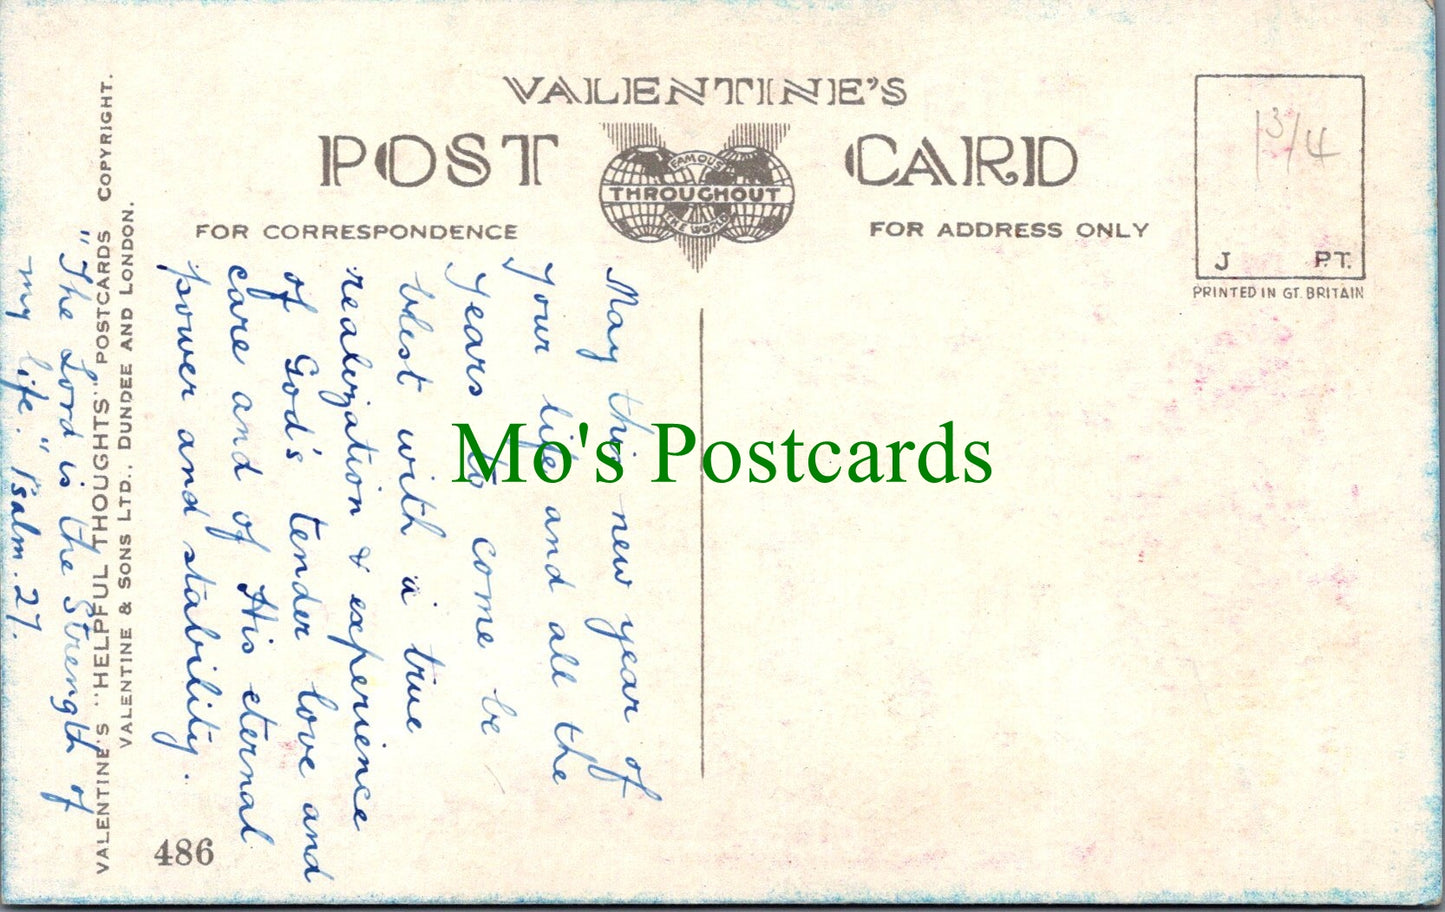 VALENTINE'S
POST CARD
FAMOUS
THROUGHOUT
THE WORLD
FOR CORRESPONDENCE
FOR ADDRESS ONLY
1 3/4
J P.T.
PRINTED IN GT. BRITAIN
May this new year of
your life and all the
years to come be
blest with a true
realization & experience
of God's tender love and
care and of His eternal
power and stability.
"The Lord is the Strength of
my life." Psalm. 27.
VALENTINE'S "HELPFUL THOUGHTS" POSTCARDS COPYRIGHT.
VALENTINE & SONS LTD., DUNDEE AND LONDON.
486
Mo's Postcards